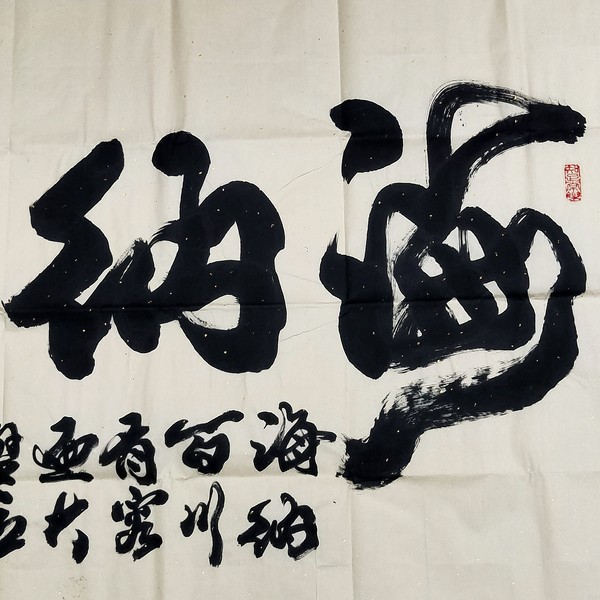 海纳
海纳
百川
有容
迺大